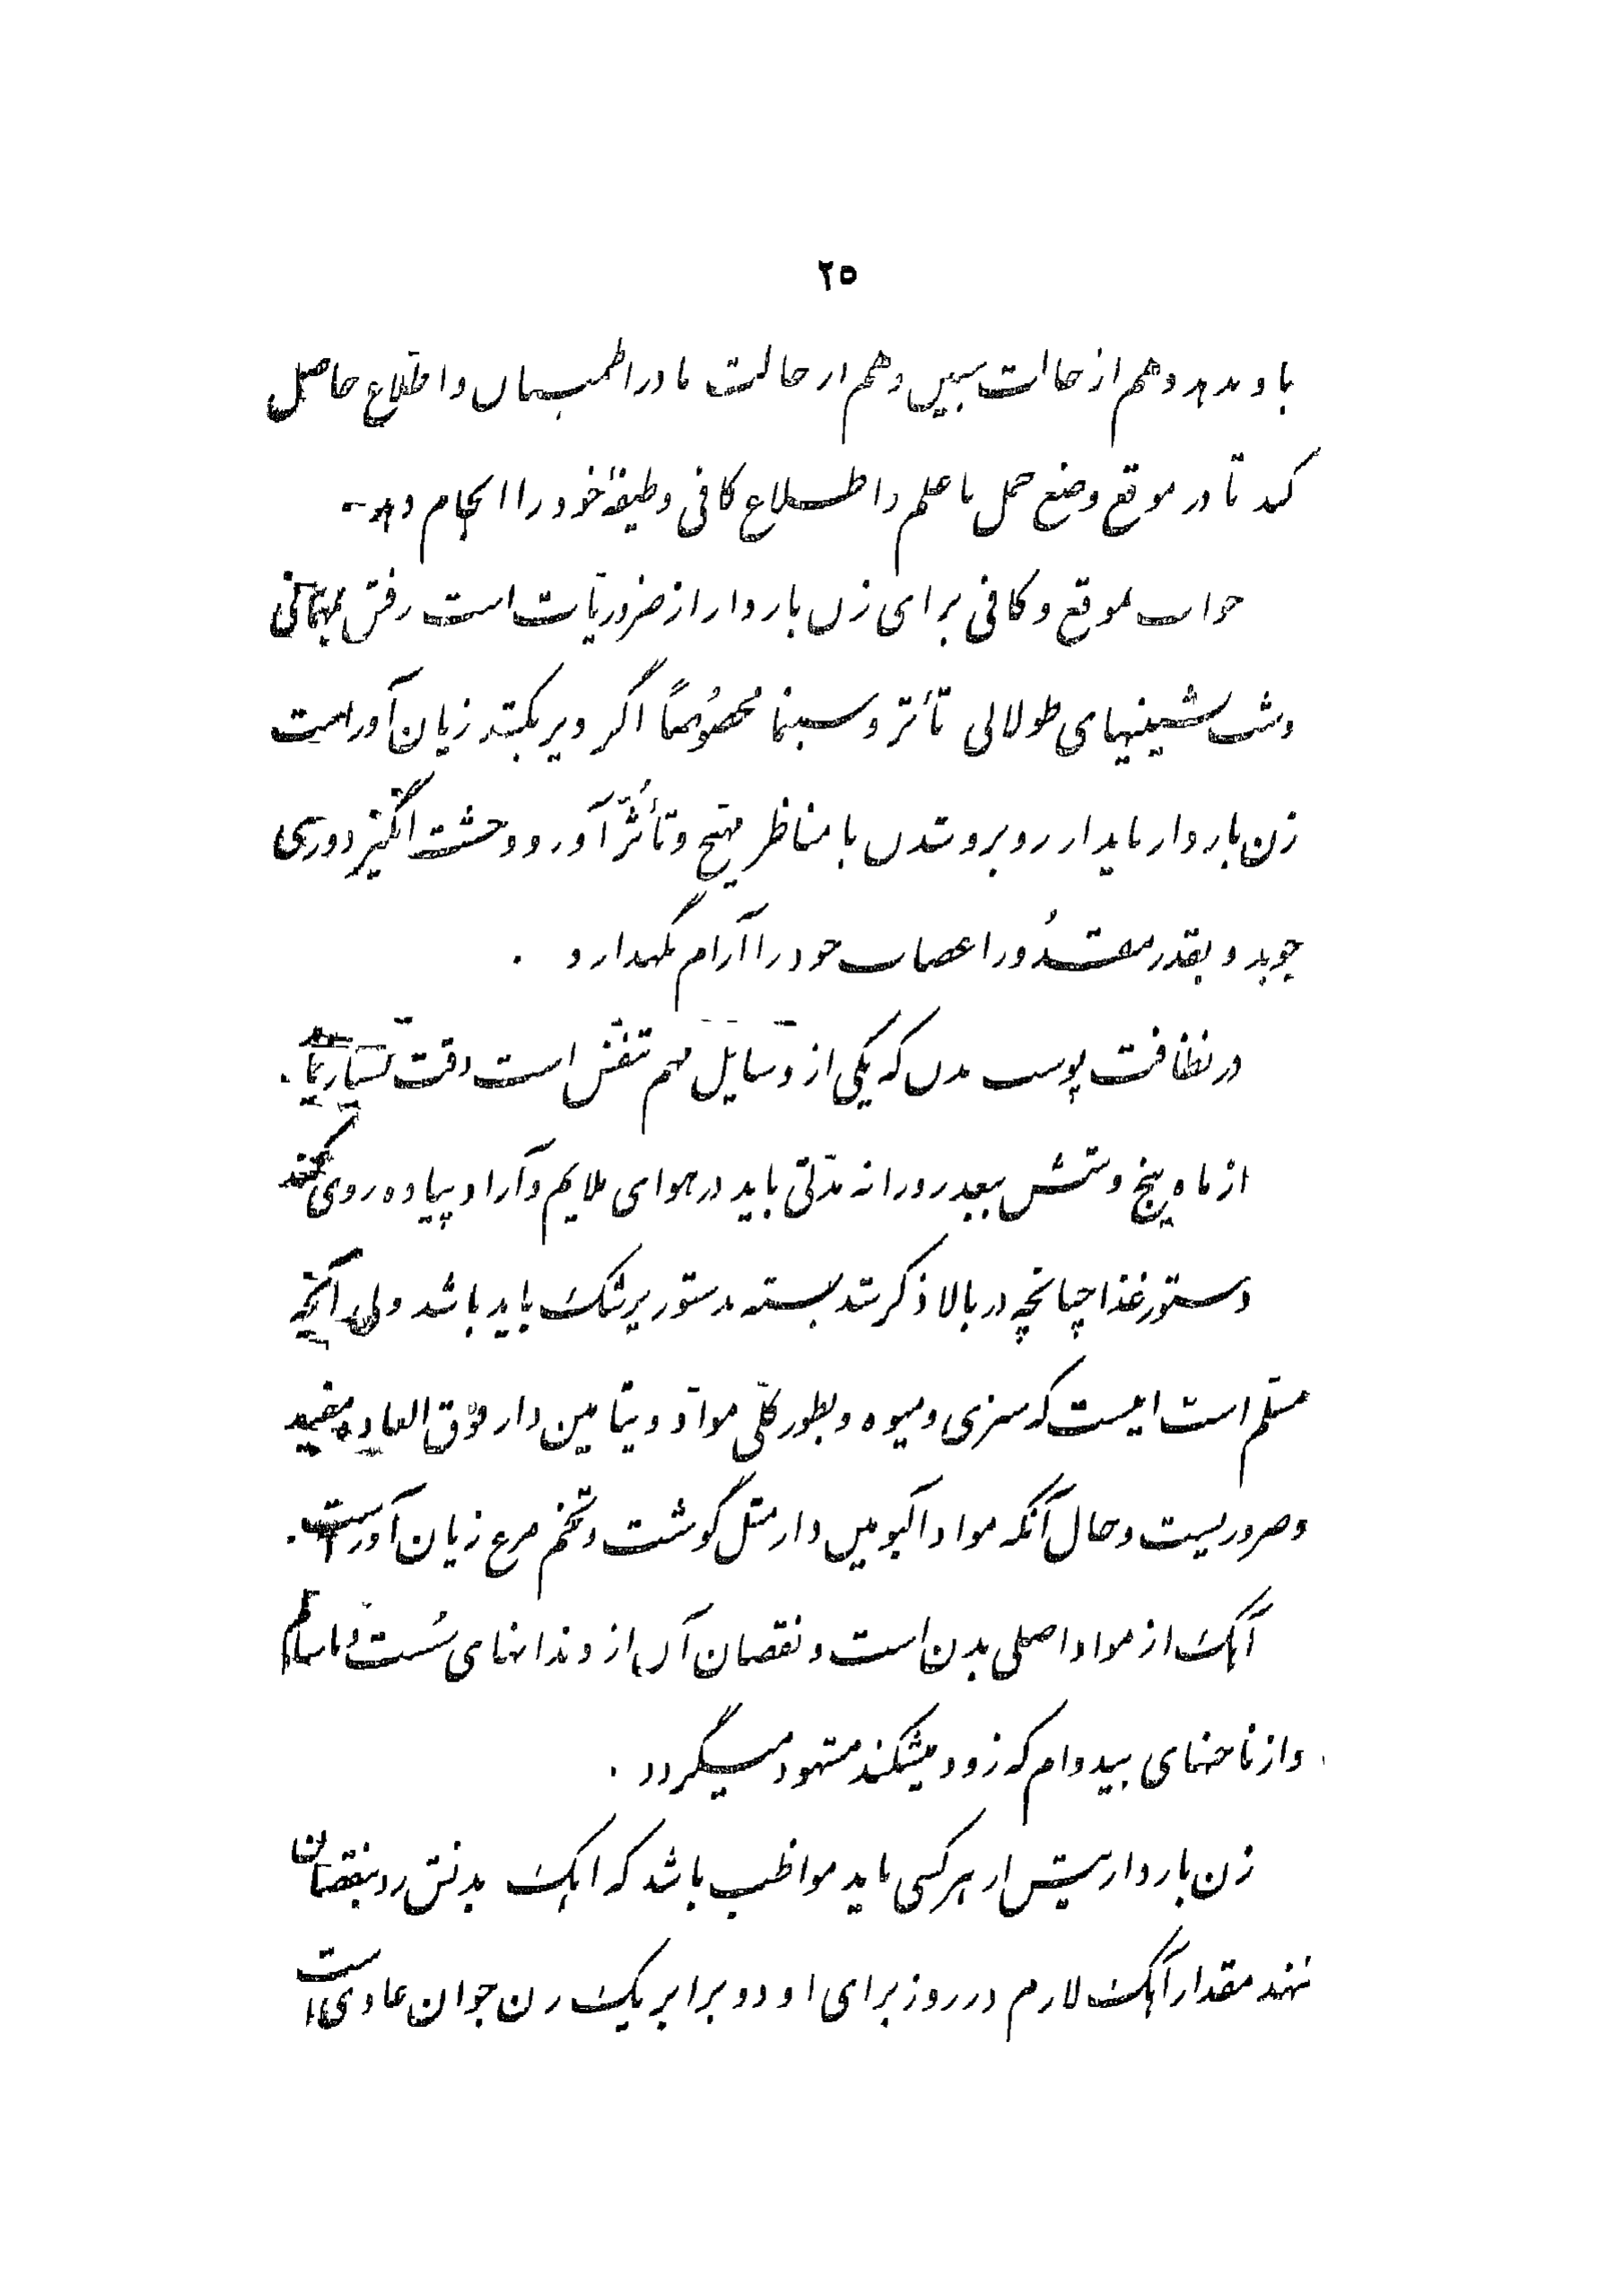 ۲۵
باو بدهد و هم از حالت جنین و هم از حالت مادر اطمینان و اطلاع حاصل
کند تا در موقع وضع حمل با علم و اطلاع کافی وظیفهٔ خود را انجام دهد
خواب بموقع و کافی برای زن باردار از ضروریّات است رفتن بمهمانی
و شب نشینیهای طولانی تأتر و سینما مخصوصاً اگر دیر بکشد زیان آور است
زن باردار باید از روبرو شدن با مناظر مهیّج و تأثّر آور و وحشت انگیز دوری
جوید و بقدر مقدُور اعصاب خود را آرام نگهدارد .
در نظافت پوست بدن که یکی از وسایل مهم تنفّس است دقّت بسیار نماید .
از ماه پنج و شش ببعد روزانه مدّتی باید در هوای ملایم و آزاد پیاده روی کند
دستور غذا چنانچه در بالا ذکر شد بسته بدستور پزشک باید باشد ولی آنچه
مسلّم است اینست که سبزی و میوه و بطور کلّی موادّ ویتامین دار فوق العاده مفید
و ضروریست و حال آنکه مواد آلبومین دار مثل گوشت و تخم مرغ زیان آور است .
آهک از مواد اصلی بدن است و نقصان آن از دندانهای سُست و ناسالم
و از ناخنهای بیدوام که زود میشکند مشهود میگردد .
زن باردار بیش از هر کسی باید مواظب باشد که آهک بدنش رو بنقصان
ننهد مقدار آهک لازم در روز برای او دو برابر یک زن جوان عادی است